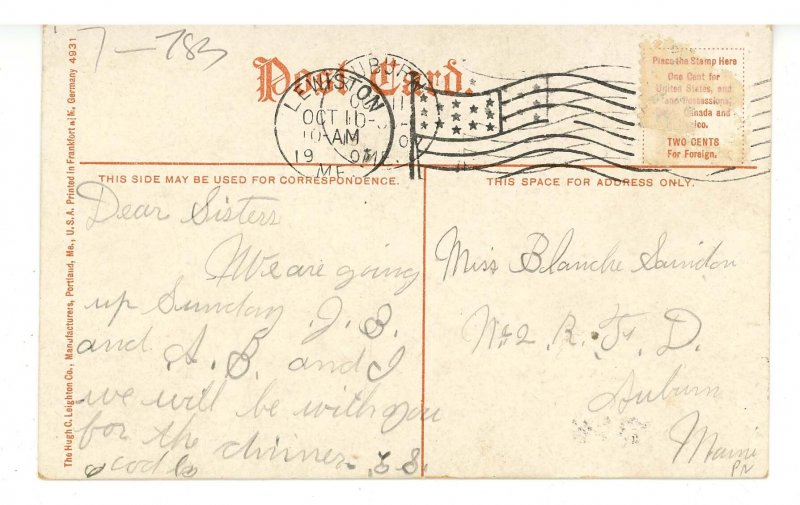 7-783
Post Card.
LEWISTON
OCT 10
10-AM
19
ME.
Place the Stamp Here
One Cent for
United States, and
Possessions,
Canada and
TWO CENTS
For Foreign.
THIS SIDE MAY BE USED FOR CORRESPONDENCE.
THIS SPACE FOR ADDRESS ONLY.
The Hugh C. Leighton Co., Manufacturers, Portland, Me., U. S. A. Printed in Frankfort a/M, Germany 4931
Dear Sisters
We are going
up Sunday J. B.
and A. B. and I
we will be with you
for the dinner
Miss Blanche
No 2 R. F. D.
Auburn
Maine